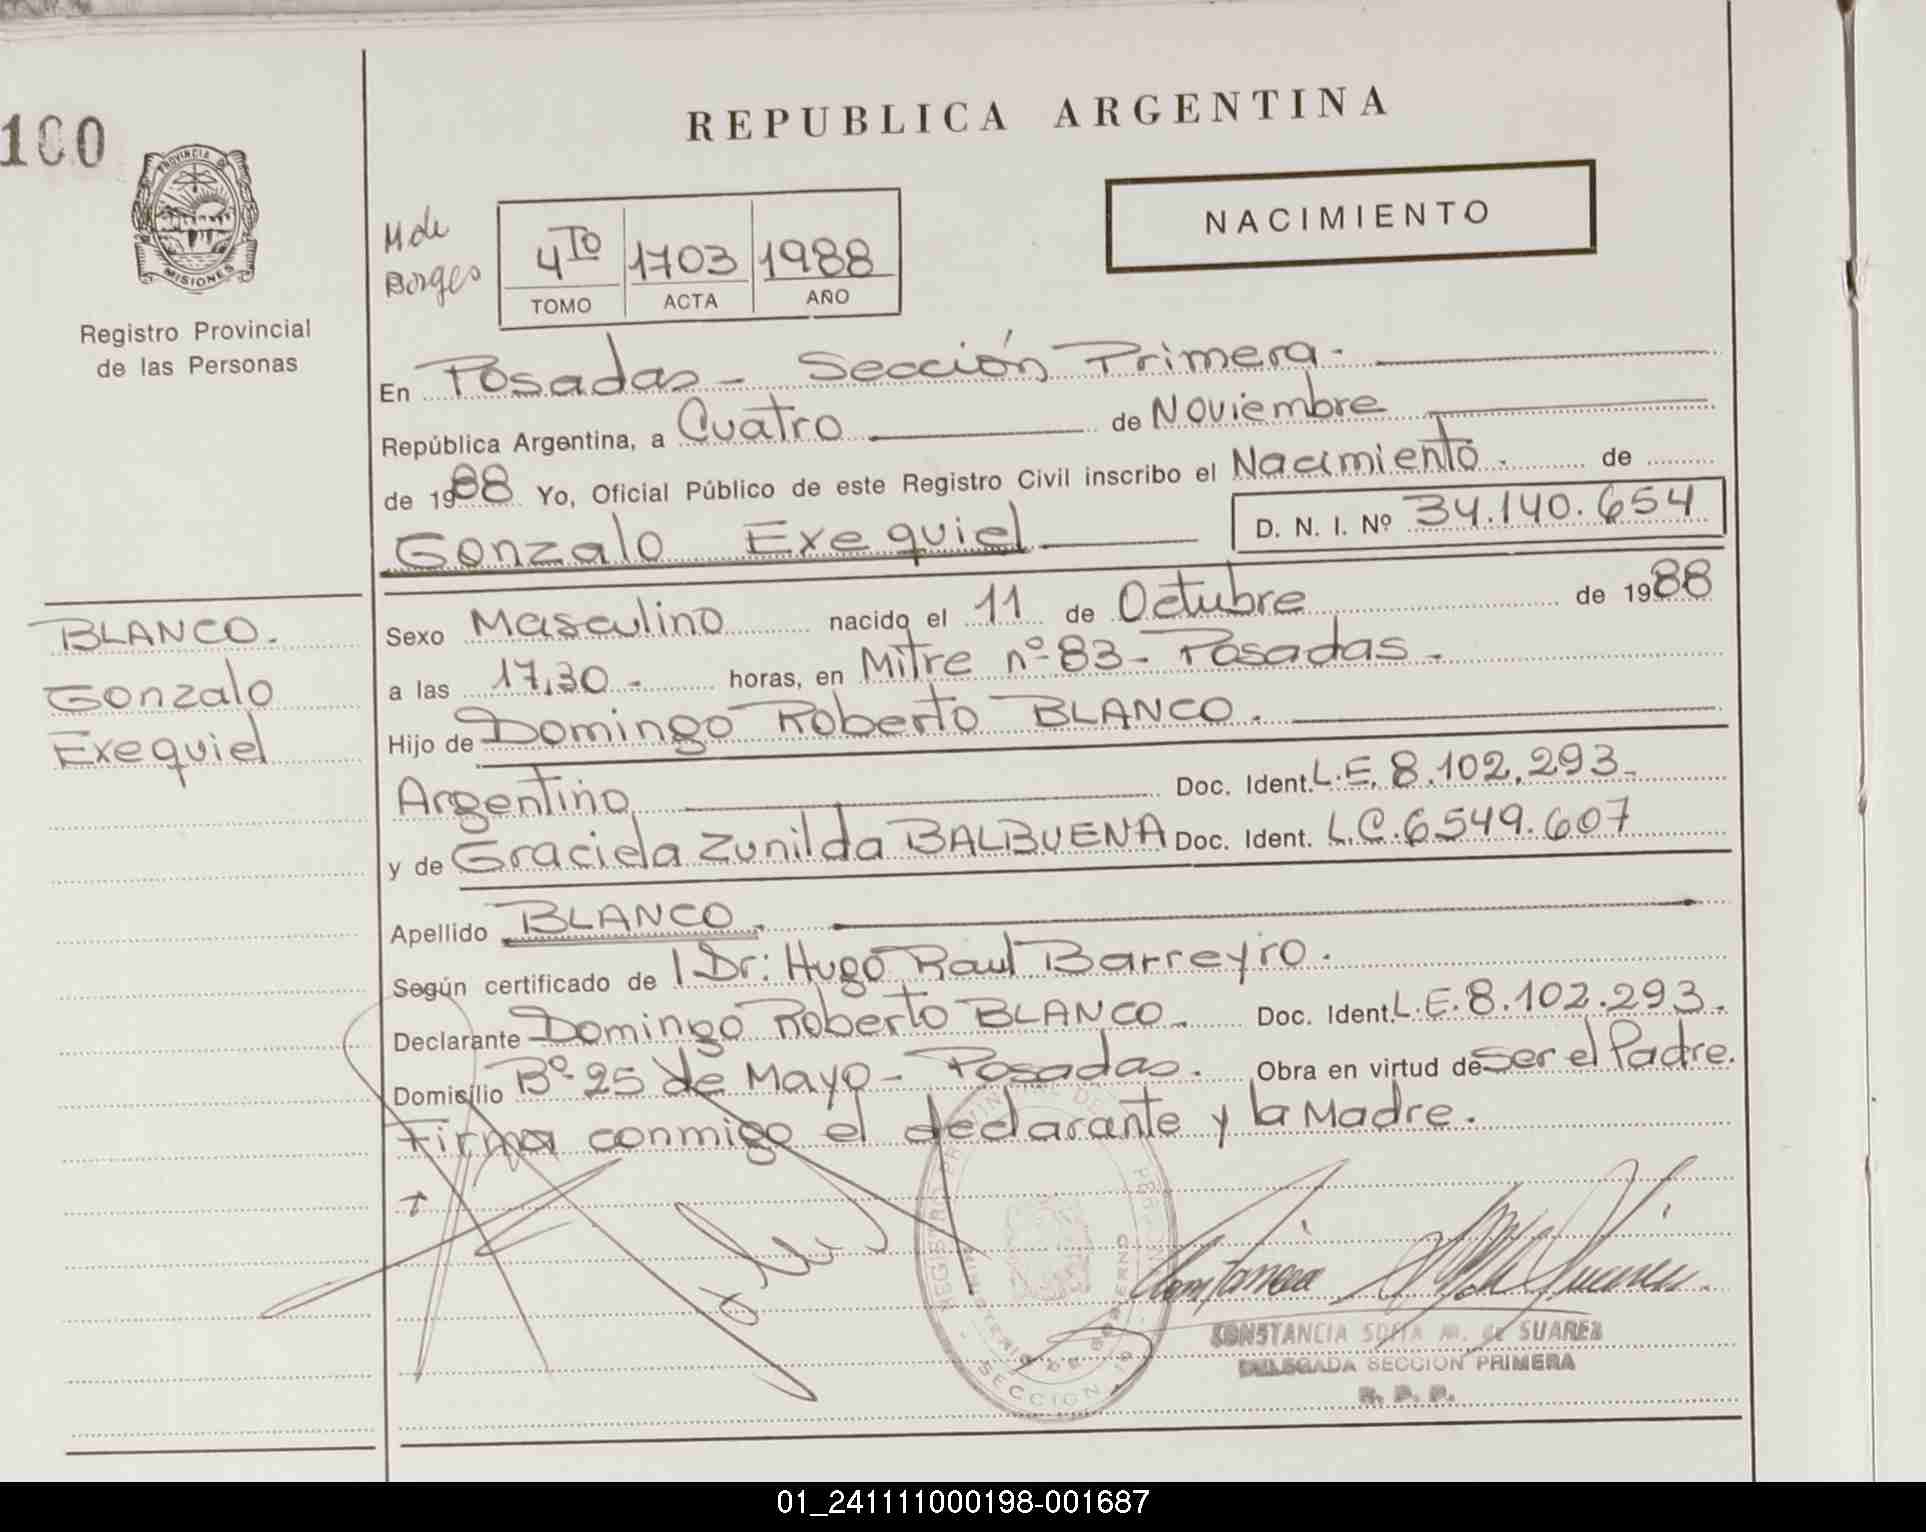 100
PROVINCIA DE
MISIONES
Registro Provincial
de las Personas
REPUBLICA ARGENTINA
NACIMIENTO
M de
Borges
4TO 1703 1988
TOMO ACTA AÑO
En Posadas - Sección Primera.
República Argentina, a Cuatro de Noviembre
de 1988 Yo, Oficial Público de este Registro Civil inscribo el Nacimiento. de
Gonzalo Exequiel D. N. I. Nº 34.140.654
BLANCO.
Gonzalo
Exequiel
Sexo Masculino nacido el 11 de Octubre de 1988
a las 17,30 - horas, en Mitre nº 83 - Posadas -
Hijo de Domingo Roberto BLANCO.
Argentino Doc. Ident. L.E. 8.102.293-
y de Graciela Zunilda BALBUENA Doc. Ident. L.C. 6549.607
Apellido BLANCO.
Según certificado de l Dr: Hugo Raul Barreyro.
Declarante Domingo Roberto BLANCO - Doc. Ident. L.E. 8.102.293.
Domicilio Bº 25 de Mayo - Posadas. Obra en virtud de ser el Padre.
Firma conmigo el declarante y la Madre.
CONSTANCIA SOFIA M. de SUAREZ
DELEGADA SECCION PRIMERA
R. P. P.
01_241111000198-001687